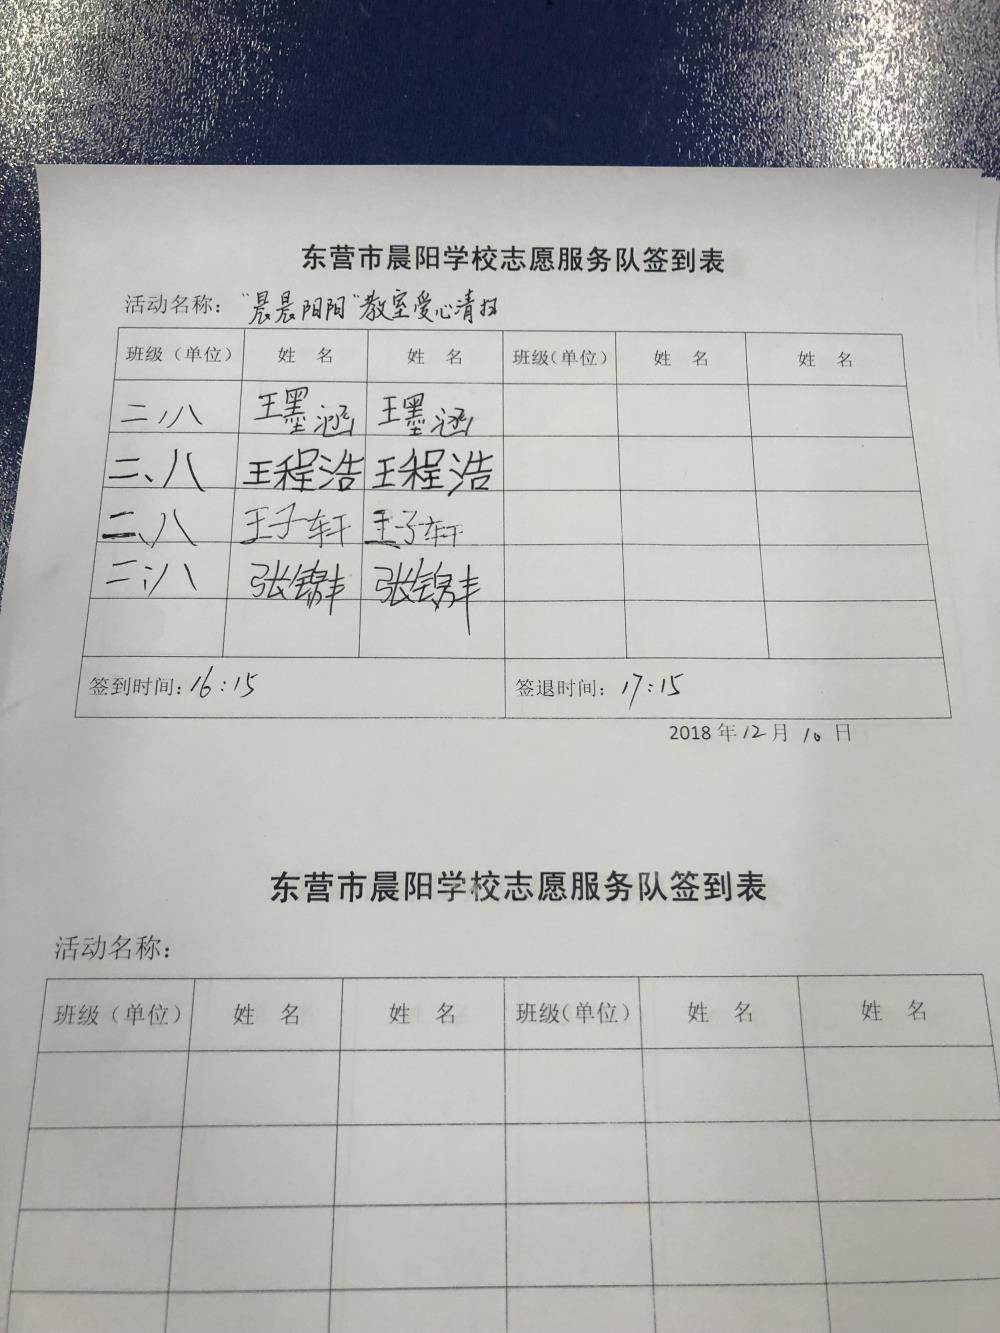 东营市晨阳学校志愿服务队签到表
活动名称："晨晨阳阳"教室爱心清扫
班级（单位） 姓 名 姓 名 班级（单位） 姓 名 姓 名
二、八 王墨涵 王墨涵
二、八 王程浩 王程浩
二、八 王子轩 王子轩
二、八 张锦丰 张锦丰
签到时间：16:15 签退时间：17:15
2018年12月10日
东营市晨阳学校志愿服务队签到表
活动名称：
班级（单位） 姓 名 姓 名 班级（单位） 姓 名 姓 名